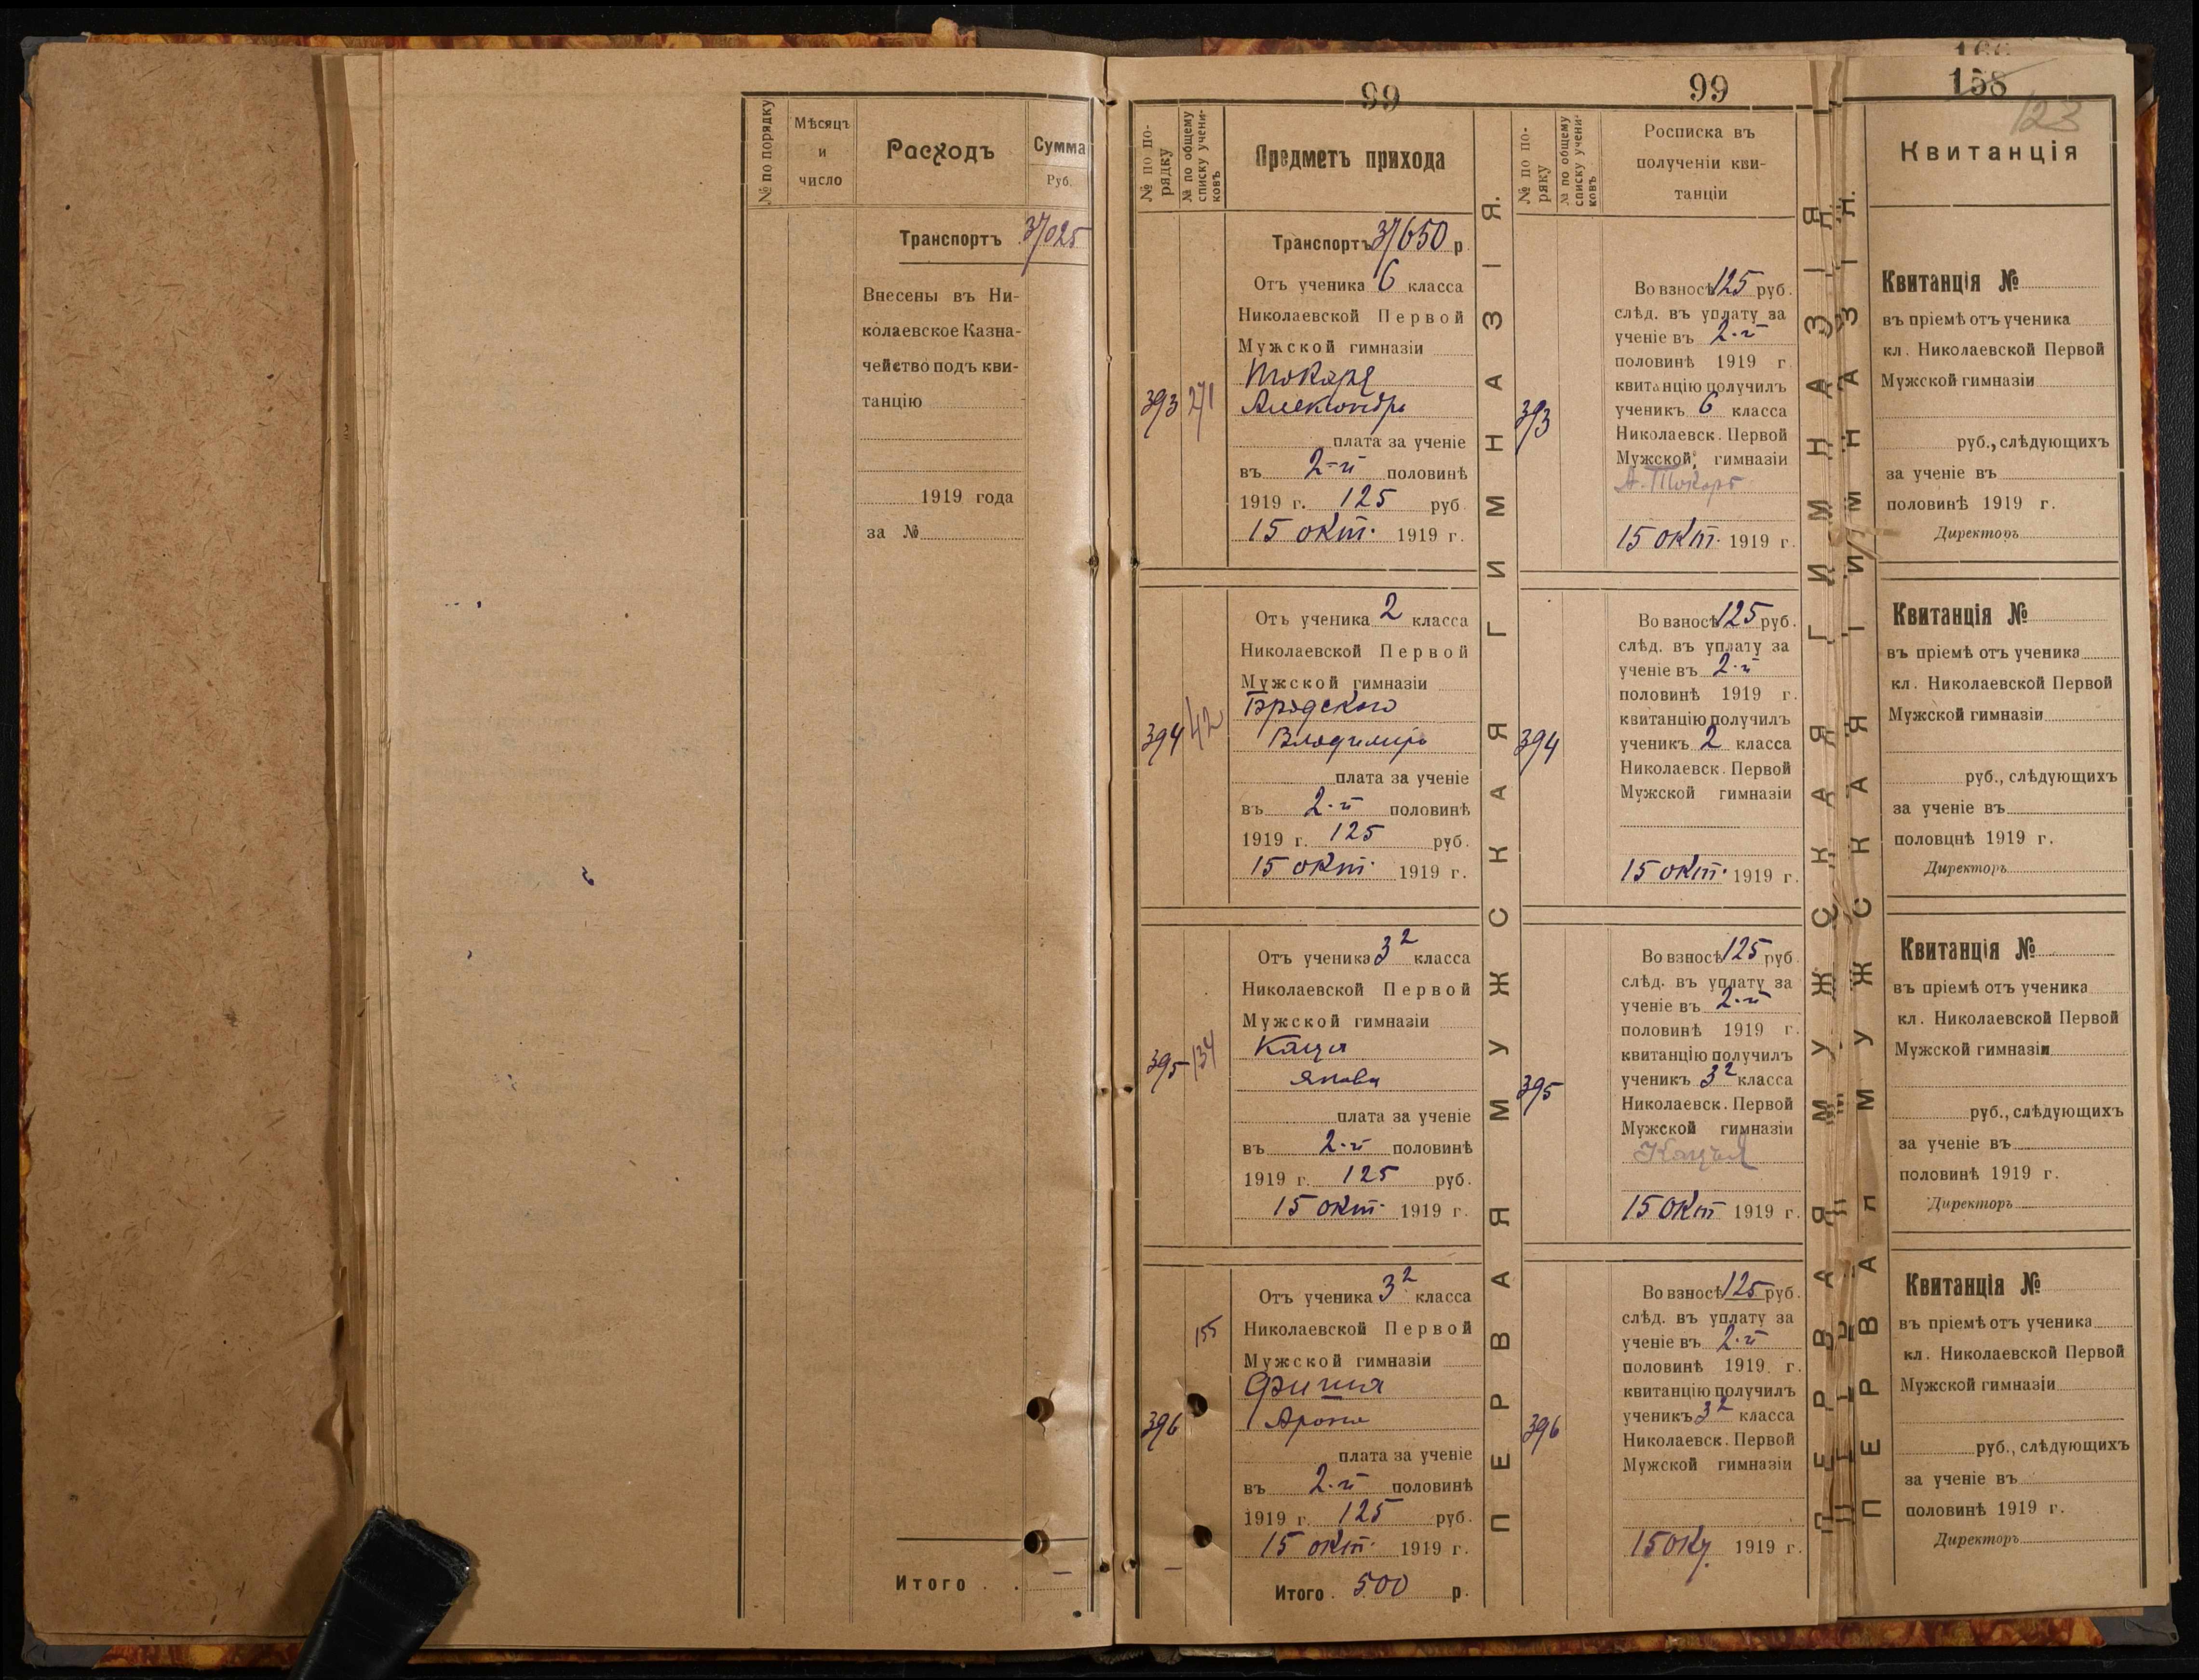 № по порядку
Мѣсяцъ
и
число
Расходъ
Сумма
Руб.
Транспортъ 37025
Внесены въ Ни-
колаевское Казна-
чейство подъ кви-
танцію
1919 года
за №
Итого . . —
99
№ по по-
рядку
№ по общему
списку учени-
ковъ
Предметъ прихода
Транспортъ 37650 р
393
271
Отъ ученика 6 класса
Николаевской Первой
Мужской гимназіи
Токаря
Александра
плата за ученіе
въ 2-й половинѣ
1919 г. 125 руб.
15 окт. 1919 г.
394
42
Отъ ученика 2 класса
Николаевской Первой
Мужской гимназіи
Бродского
Владимира
плата за ученіе
въ 2-й половинѣ
1919 г. 125 руб.
15 окт. 1919 г.
395
134
Отъ ученика 3² класса
Николаевской Первой
Мужской гимназіи
Каца
Якова
плата за ученіе
въ 2-й половинѣ
1919 г. 125 руб.
15 окт. 1919 г.
396
155
Отъ ученика 3² класса
Николаевской Первой
Мужской гимназіи
Фиша
Арона
плата за ученіе
въ 2-й половинѣ
1919 г. 125 руб.
15 окт. 1919 г.
Итого . 500 р.
ПЕРВАЯ МУЖСКАЯ ГИМНАЗІЯ.
99
№ по по-
ряку
№ по общему
списку учени-
ковъ
Росписка въ
полученіи кви-
танціи
393
Во взносѣ 125 руб.
слѣд. въ уплату за
ученіе въ 2-й
половинѣ 1919 г.
квитанцію получилъ
ученикъ 6 класса
Николаевск. Первой
Мужской гимназіи
А. Токарь
15 окт. 1919 г.
394
Во взносѣ 125 руб.
слѣд. въ уплату за
ученіе въ 2-й
половинѣ 1919 г.
квитанцію получилъ
ученикъ 2 класса
Николаевск. Первой
Мужской гимназіи
15 окт. 1919 г.
395
Во взносѣ 125 руб.
слѣд. въ уплату за
ученіе въ 2-й
половинѣ 1919 г.
квитанцію получилъ
ученикъ 3² класса
Николаевск. Первой
Мужской гимназіи
15 окт 1919 г.
396
Во взносѣ 125 руб.
слѣд. въ уплату за
ученіе въ 2-й
половинѣ 1919 г.
квитанцію получилъ
ученикъ 3² класса
Николаевск. Первой
Мужской гимназіи
15 Ок 1919 г.
ПЕРВАЯ МУЖСКАЯ ГИМНАЗІЯ
ПЕРВАЯ МУЖСКАЯ ГИМНАЗІ
158
123
Квитанція
Квитанція №
въ пріемѣ отъ ученика
кл. Николаевской Первой
Мужской гимназіи
руб., слѣдующихъ
за ученіе въ
половинѣ 1919 г.
Директоръ
Квитанція №
въ пріемѣ отъ ученика
кл. Николаевской Первой
Мужской гимназіи
руб., слѣдующихъ
за ученіе въ
половцнѣ 1919 г.
Директоръ
Квитанція №
въ пріемѣ отъ ученика
кл. Николаевской Первой
Мужской гимназіи
руб., слѣдующихъ
за ученіе въ
половинѣ 1919 г.
Директоръ
Квитанція №
въ пріемѣ отъ ученика
кл. Николаевской Первой
Мужской гимназіи
руб., слѣдующихъ
за ученіе въ
половинѣ 1919 г.
Директоръ